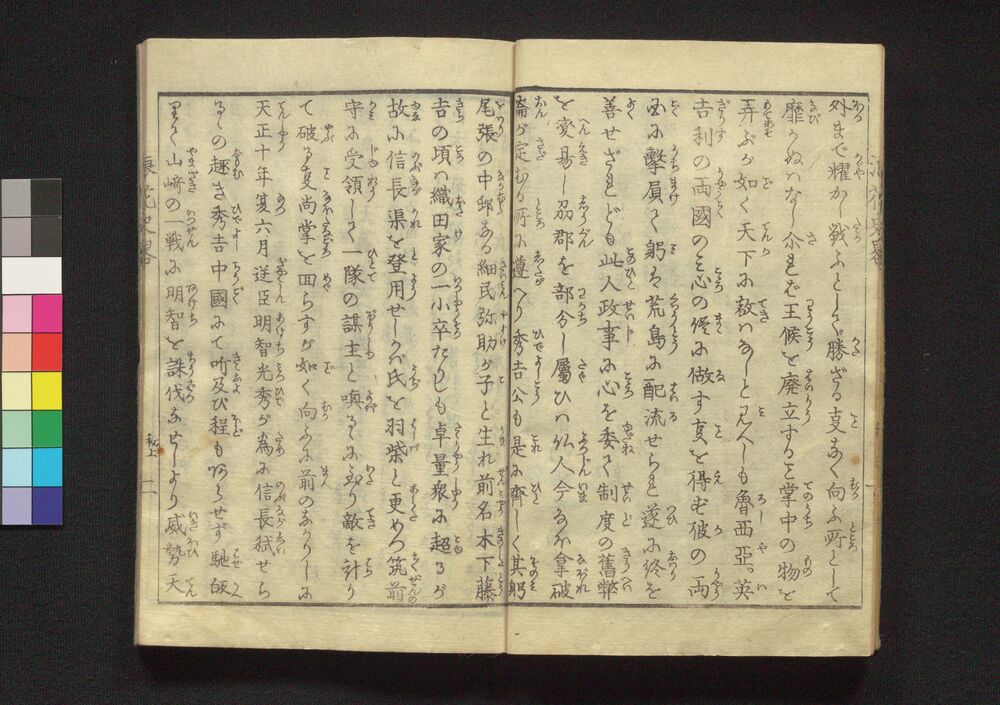 外まで耀かし戦ふとして勝ざる事なく向ふ所として
靡かぬハなし尓れバ王候を廃立する事掌中の物を
弄ぶが如く天下に敵ハなしと見へしも魯西亜。英
吉利の両國の心の侭に做す事を得ず彼の両
國に撃員て躬は荒島に配流せられ遂に終を
善せざれども此人政事に心を委て制度の舊弊
を変易し刕郡を部分し属ひハ仏人今なほ拿破
崙が定むる所に遵へり秀吉公も是に齊しく其躬
尾張の中邨なる細民弥助が子と生れ前名木下藤
吉の頃ハ織田家の一小卒たりしも卓量衆に超るが
故に信長渠を登用せしかバ氏を羽柴と更め筑前
守に受領して一隊の謀主と喚るゝに到り敵を討
て破る事尚掌を面らすが如く向ふに前のなかりしに
天正十年夏六月逆臣明智光秀が為に信長弑せら
るゝの趣き秀吉中國にて听及び程もあらせず馳皈
りて山﨑の一戦に明智を誅伐なせしより威勢天